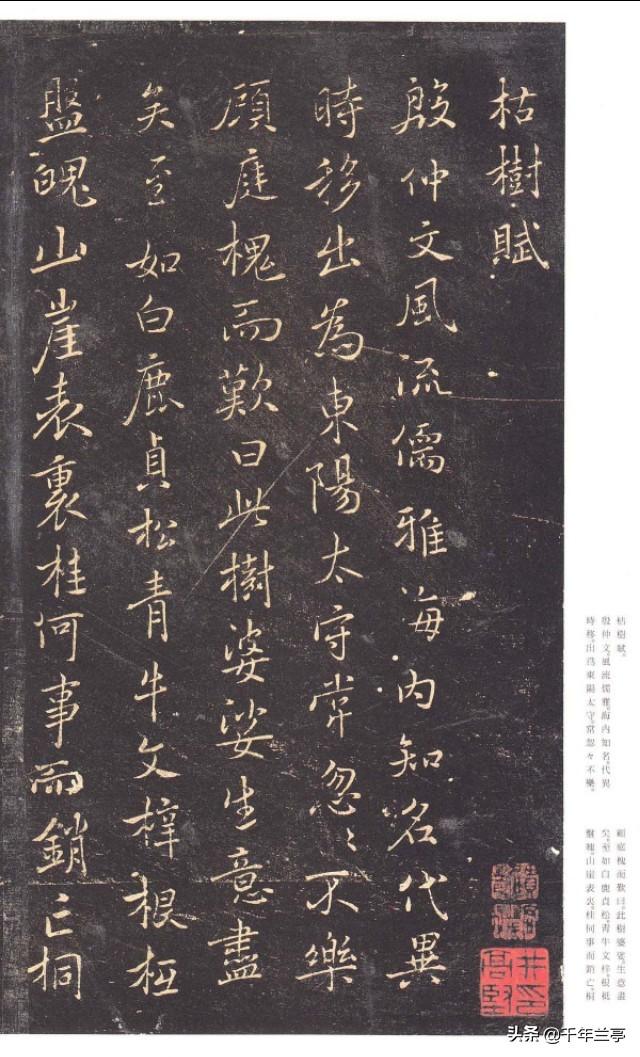 枯樹賦
殷仲文風流儒雅海内知名代異
時移出為東陽太守常忽〻不樂
顧庭槐而歎曰此樹婆娑生意盡
矣至如白鹿貞松青牛文梓根柢
盤魄山崖表裏桂何事而銷亡桐
枯樹賦。
殷仲文。風流儒雅。海内知名。代異
時移。出爲東陽太守。常忽々不樂。
顧庭槐而歎曰。此樹婆娑。生意盡
矣。至如白鹿貞松。青牛文梓。根柢
盤魄。山崖表裏。桂何事而銷亡。桐
头条 @千年兰亭